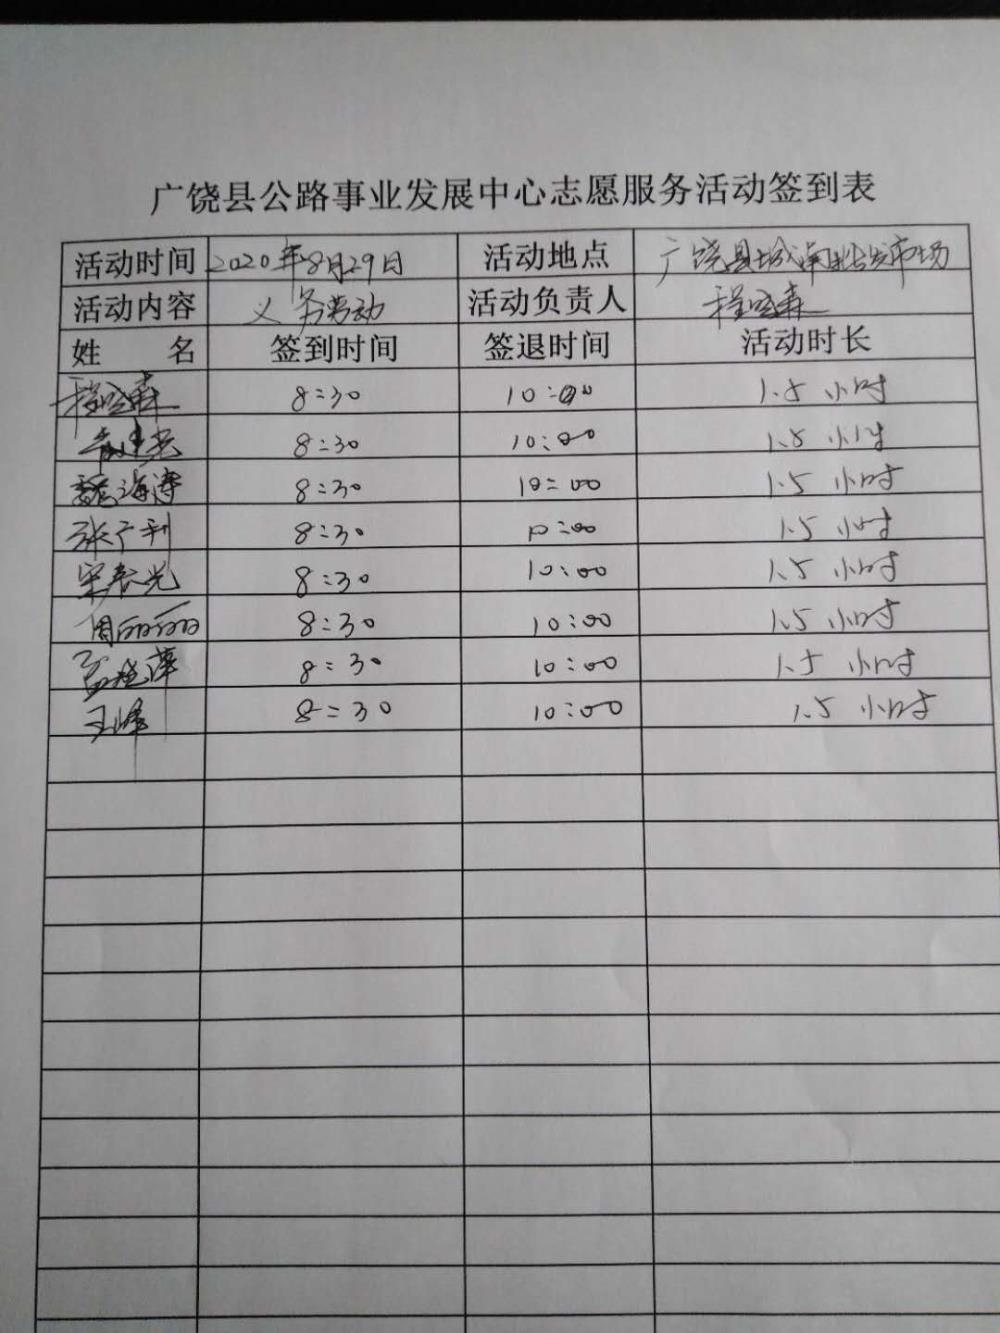 广饶县公路事业发展中心志愿服务活动签到表
活动时间 2020年8月29日 活动地点 广饶县城南批发市场
活动内容 义务劳动 活动负责人 程晓森
姓 名 签到时间 签退时间 活动时长
程晓森 8:30 10:00 1.5 小时
8:30 10:00 1.5 小时
魏海涛 8:30 10:00 1.5 小时
张广利 8:30 10:00 1.5 小时
宋春光 8:30 10:00 1.5 小时
周丽丽 8:30 10:00 1.5 小时
孟晓萍 8:30 10:00 1.5 小时
王峰 8:30 10:00 1.5 小时